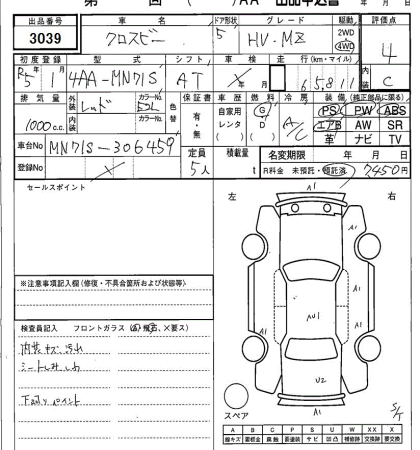 第 回 ( )AA 出品申込書 年 月 日
出品番号 車名 ドア形状 グレード 駆動 評価点
3039 クロスビー 5 HV・MZ 2WD 4WD 4
初度登録 型式 シフト 車検 走行(km・マイル) 内装
R5 1 4AA-MN71S AT 年 月 65,811 C
排気量 外装 カラーNo. 色替 保証書 車歴 燃料 冷房 装備(純正部品に限る)
1000 c.c. レッド 内装 カラーNo. 有・無 自家用 レンタ ( ) G D ( ) A/C PS PW ABS
エアB AW SR
革 ナビ TV
車台No MN71S-306459 定員 積載量 名変期限 年 月 日
登録No 5人 R料金 未預託・預託済 7450円
セールスポイント 左 右
A1
A1
A1
A1
AU1
※注意事項記入欄(修復・不具合箇所および状態等)
検査員記入 フロントガラス (A 飛石、×要ス)
内装キズ、汚れ
シートしみ、しわ
下廻りペイント
U2
A1
スペア
S/T
A B C P S U W X XX ×
線キズ 要板金 腐触 要塗装 サビ 凹凸 補修跡 交換跡 要交換